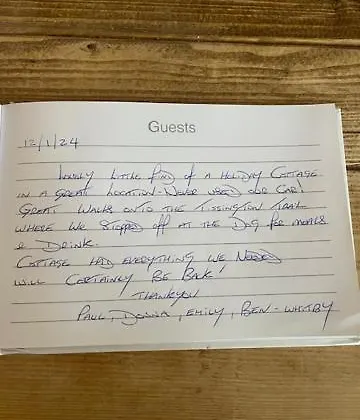 Guests
12/1/24
Lovely little find of a Holiday Cottage
in a great location - Never used our car!
Great walks onto the Tissington Trail
where we stopped off at the Dog for meals
& Drink.
Cottage had everything we needed
will certainly be back!
Thankyou
Paul, Donna, Emily, Ben - Whitby